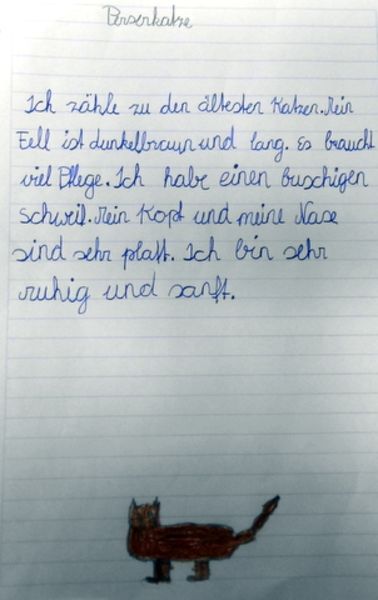 Perserkatze
Ich zähle zu den ältesten Katzen. Mein
Fell ist dunkelbraun und lang. Es braucht
viel Pflege. Ich habe einen buschigen
schweif. Mein Kopf und meine Nase
sind sehr platt. Ich bin sehr
ruhig und sanft.